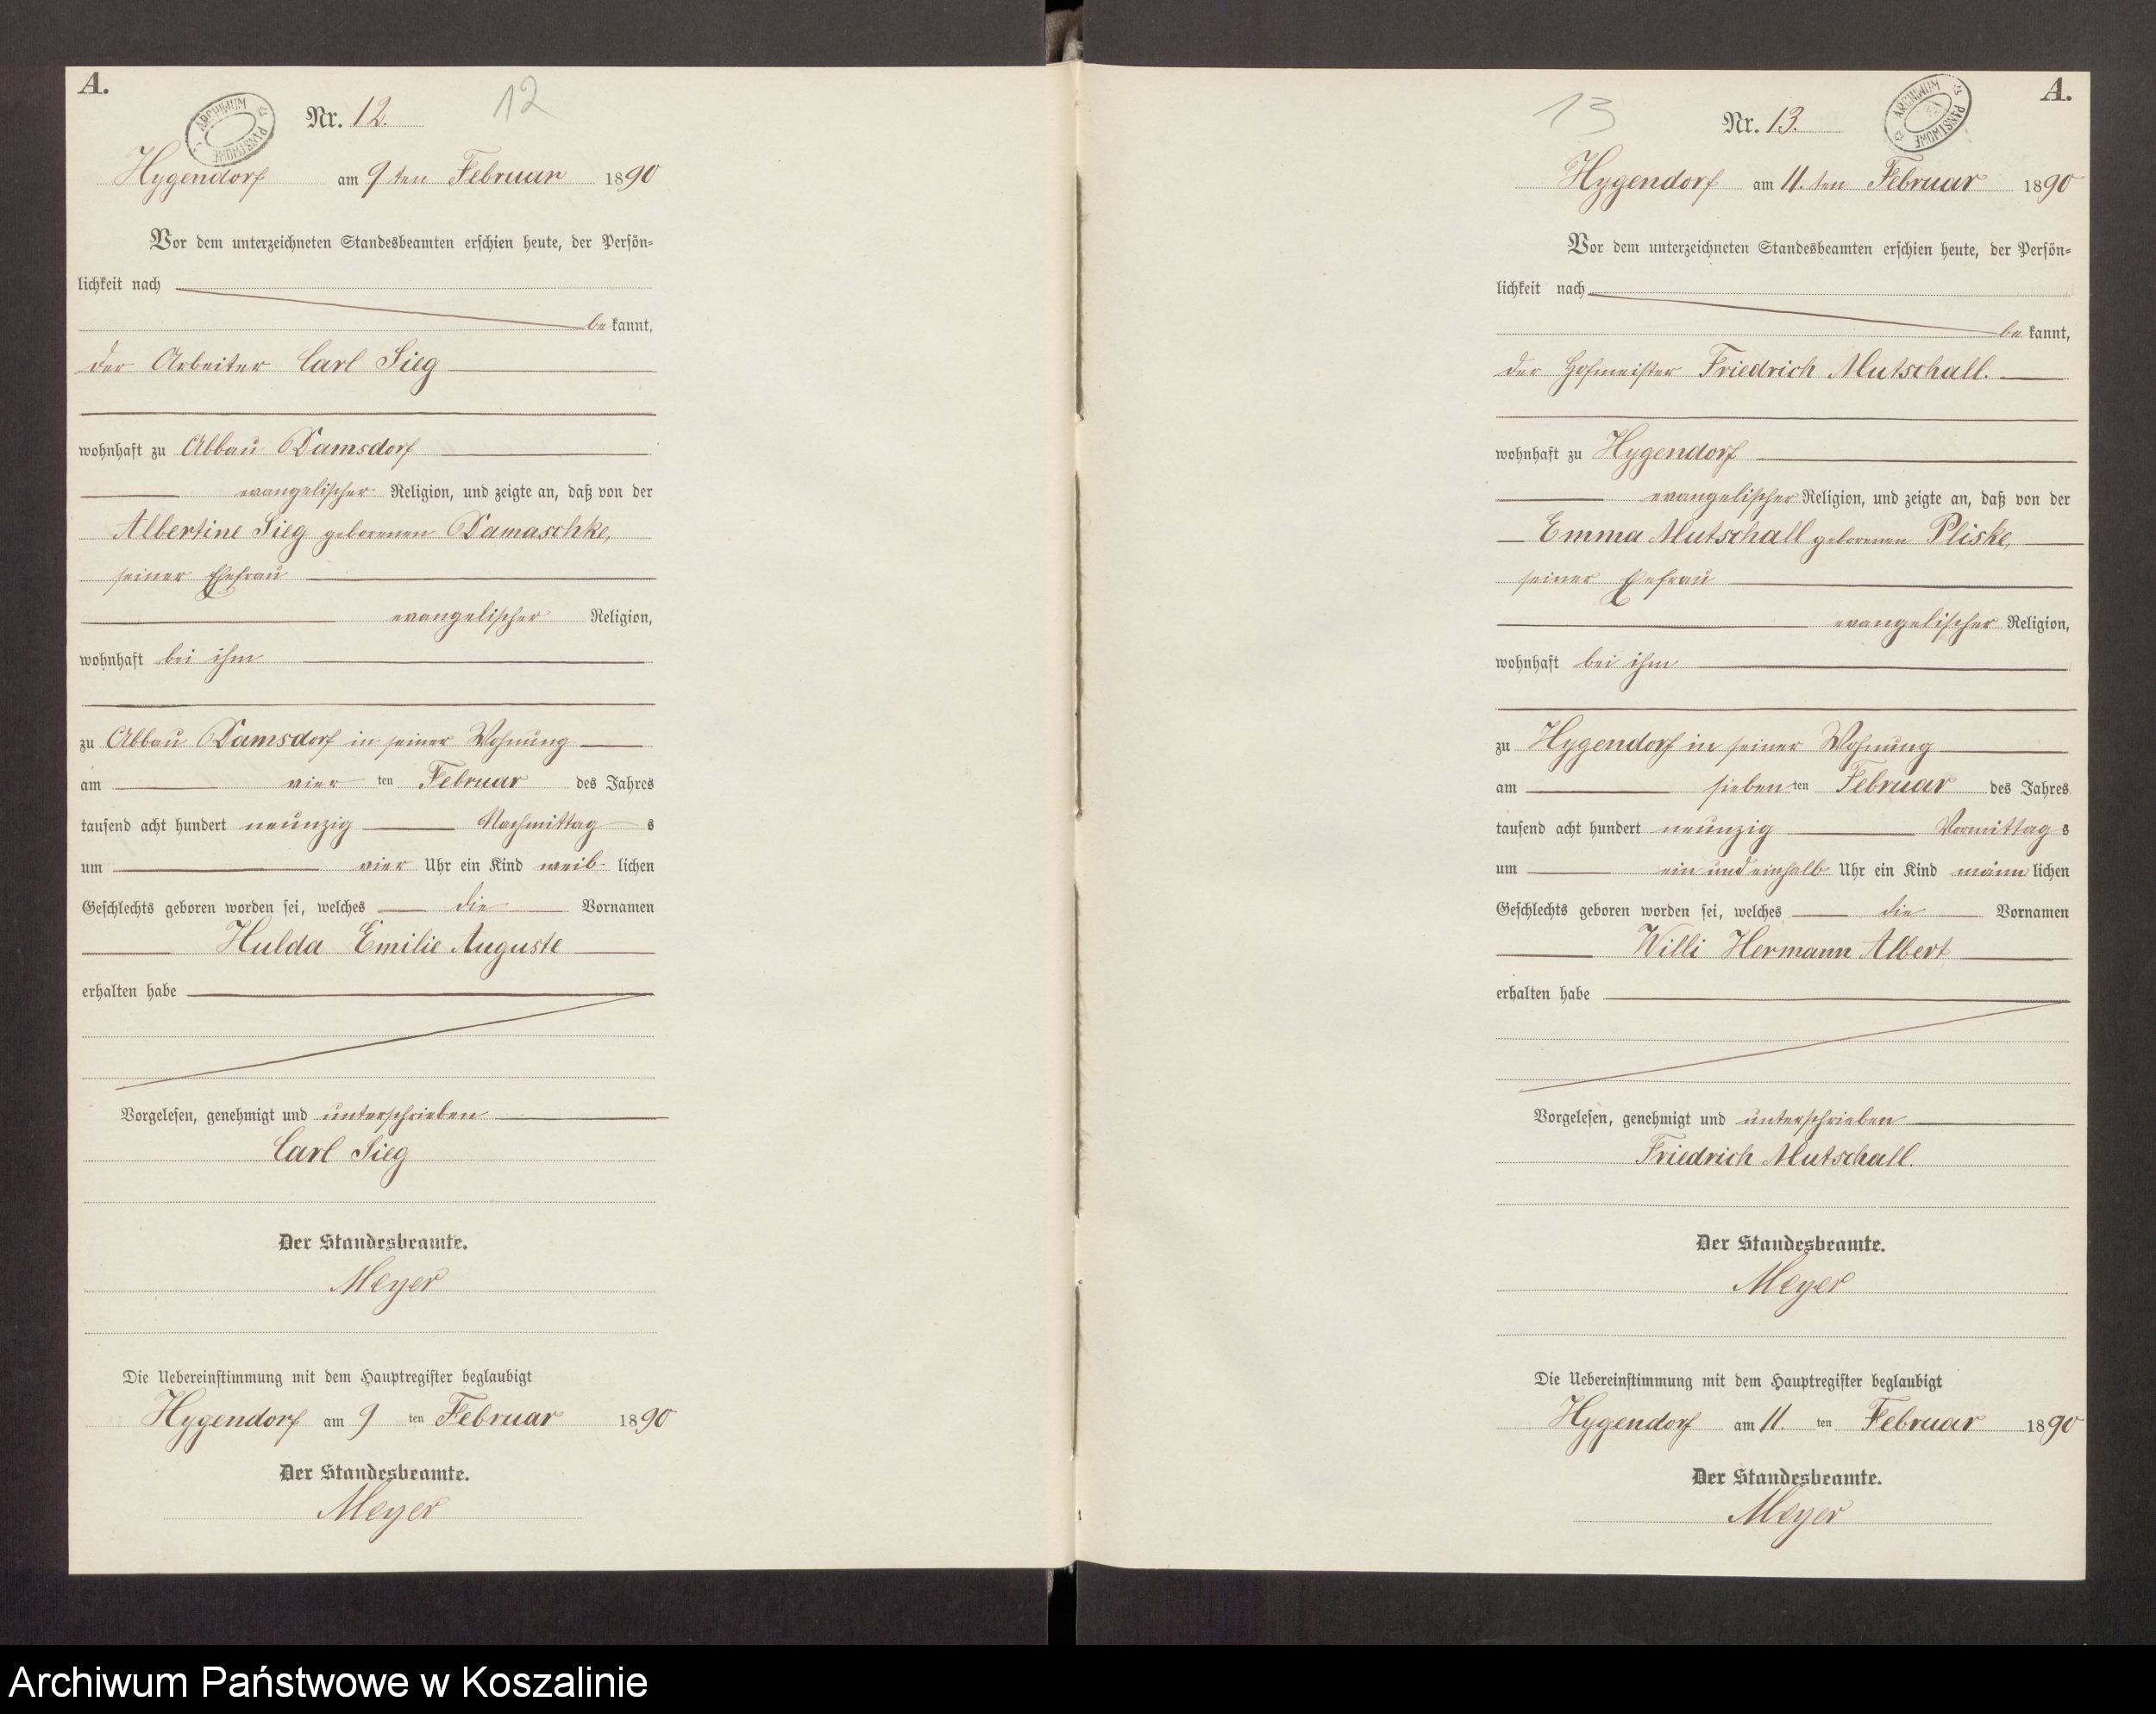 A.
ARCHIWUM PAŃSTWOWE
Nr. 12.
12
Hygendorf am 9ten Februar 1890
Vor dem unterzeichneten Standesbeamten erschien heute, der Persön-
lichkeit nach
bekannt,
der Arbeiter Carl Sieg
wohnhaft zu Abbau Damsdorf
evangelischer Religion, und zeigte an, daß von der
Albertine Sieg geborenen Damaschke,
seiner Ehefrau
evangelischer Religion,
wohnhaft bei ihm
zu Abbau Damsdorf in seiner Wohnung
am vierten Februar des Jahres
tausend acht hundert neunzig Nachmittags
um vier Uhr ein Kind weiblichen
Geschlechts geboren worden sei, welches die Vornamen
Hulda Emilie Auguste
erhalten habe
Vorgelesen, genehmigt und unterschrieben
Carl Sieg
Der Standesbeamte.
Meyer
Die Uebereinstimmung mit dem Hauptregister beglaubigt
Hygendorf am 9ten Februar 1890
Der Standesbeamte.
Meyer
A.
ARCHIWUM PAŃSTWOWE
13
Nr. 13.
Hygendorf am 11.ten Februar 1890
Vor dem unterzeichneten Standesbeamten erschien heute, der Persön-
lichkeit nach
bekannt,
der Hofmeister Friedrich Mutschall.
wohnhaft zu Hygendorf
evangelischer Religion, und zeigte an, daß von der
Emma Mutschall geborenen Pliske,
seiner Ehefrau
evangelischer Religion,
wohnhaft bei ihm
zu Hygendorf in seiner Wohnung
am siebenten Februar des Jahres
tausend acht hundert neunzig Vormittags
um ein und einhalb Uhr ein Kind männlichen
Geschlechts geboren worden sei, welches die Vornamen
Willi Hermann Albert
erhalten habe
Vorgelesen, genehmigt und unterschrieben
Friedrich Mutschall.
Der Standesbeamte.
Meyer
Die Uebereinstimmung mit dem Hauptregister beglaubigt
Hygendorf am 11.ten Februar 1890
Der Standesbeamte.
Meyer
Archiwum Państwowe w Koszalinie